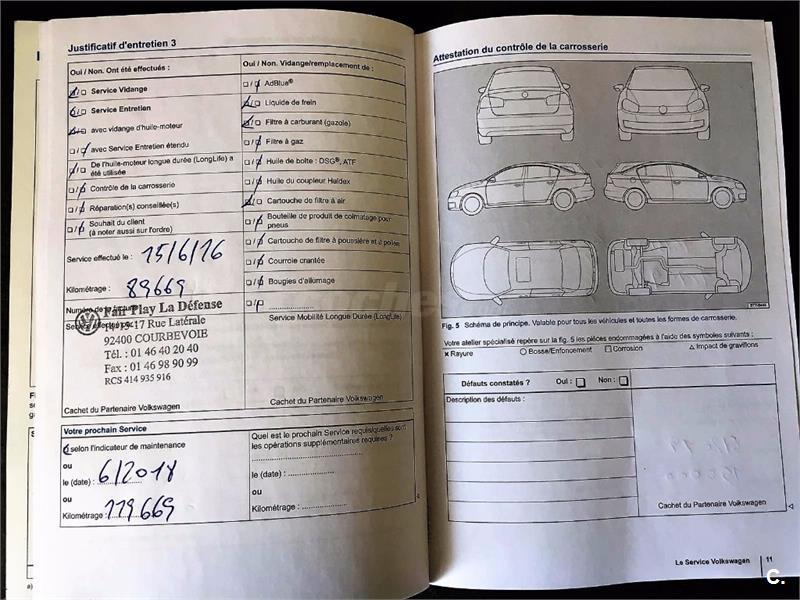 Justificatif d'entretien 3
Oui / Non. Ont été effectués :
Service Vidange
Service Entretien
avec vidange d'huile-moteur
avec Service Entretien étendu
De l'huile-moteur longue durée (LongLife) a
été utilisée
Contrôle de la carrosserie
Réparation(s) conseillée(s)
Souhait du client
(à noter aussi sur l'ordre)
Service effectué le : 15/6/16
Kilométrage : 89669
Fair Play La Défense
17 Rue Latérale
92400 COURBEVOIE
Tél. : 01 46 40 20 40
Fax : 01 46 98 90 99
RCS 414 935 916
Cachet du Partenaire Volkswagen
Oui / Non. Vidange/remplacement de :
AdBlue®
Liquide de frein
Filtre à carburant (gazole)
Filtre à gaz
Huile de boîte : DSG®, ATF
Huile du coupleur Haldex
Cartouche de filtre à air
Bouteille de produit de colmatage pour
pneus
Cartouche de filtre à poussière et à pollen
Courroie crantée
Bougies d'allumage
Service Mobilité Longue Durée (LongLife)
Cachet du Partenaire Volkswagen
Votre prochain Service
selon l'indicateur de maintenance
ou
le (date) : 6/2018
ou
Kilométrage : 119669
Quel est le prochain Service requis/quelles sont
les opérations supplémentaires requises ?
le (date) :
ou
Kilométrage :
Attestation du contrôle de la carrosserie
Fig. 5 Schéma de principe. Valable pour tous les véhicules et toutes les formes de carrosserie.
Votre atelier spécialisé repère sur la fig. 5 les pièces endommagées à l'aide des symboles suivants :
× Rayure ○ Bosse/Enfoncement □ Corrosion △ Impact de gravillons
Défauts constatés ? Oui : Non :
Description des défauts :
Cachet du Partenaire Volkswagen
Le Service Volkswagen 11
C.